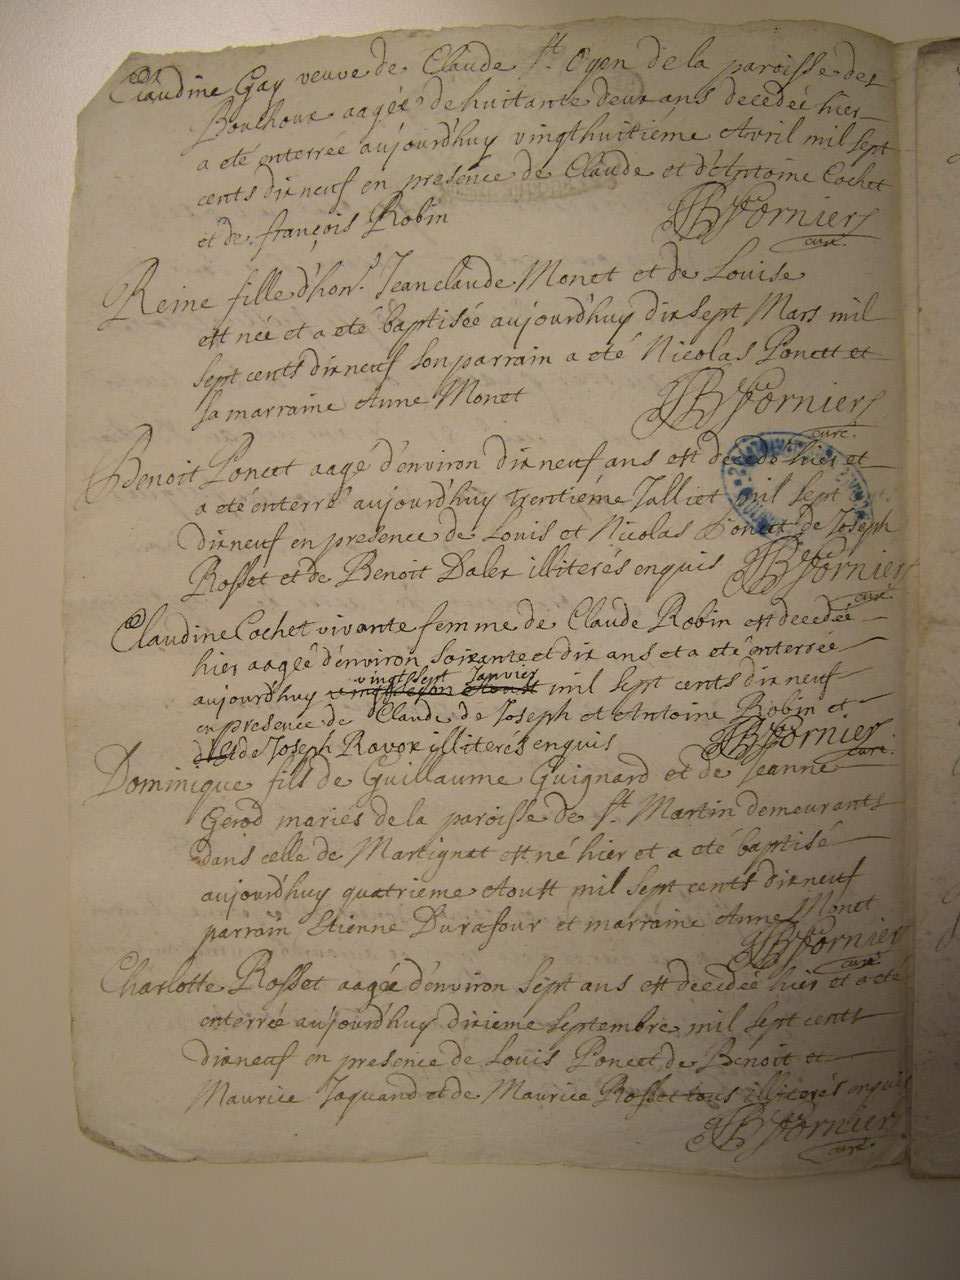 Claudine Gay veuve de Claude St. Oyen de la paroisse des
Bouchoux aagée de huitante deux ans decedée hier
a eté enterrée aujourd'huy vingthuitiéme Avril mil sept
cents dixneuf en presence de Claude et d'Antoine Cochet
et de françois Robin
JB Fornier
curé.
Reine fille d'hon. Jeanclaude Monet et de Louise
est née et a eté baptisée aujourd'huy dixsept Mars mil
sept cents dixneuf son parrain a eté Nicolas Poncet et
sa marraine Anne Monet
JB Fornier
curé.
Benoit Poncet aagé d'environ dixneuf ans est decedé hier et
a eté enterré aujourd'huy trentiéme Julliet mil sept
dixneuf en presence de Louis et Nicolas Poncet de Joseph
Rosset et de Benoit Dalex illiterés enquis
JB Fornier
curé.
Claudine Cochet vivante femme de Claude Robin est decedée
hier aagée d'environ soixante et dix ans et a eté enterrée
vingtsept Janvier
aujourd'huy mil sept cents dixneuf
en presence de Claude de Joseph et Antoine Robin et
de Joseph Ravox illiterés enquis
JB Fornier
curé.
Dominique fils de Guillaume Guignard et de Jeanne
Gerod mariés de la paroisse de St. Martin demeurants
dans celle de Martignat est né hier et a eté baptisé
aujourd'huy quatrieme Aoust mil sept cents dixneuf
parrain Etienne Durafour et marraine Anne Monet
JB Fornier
curé
Charlotte Rosset aagée d'environ sept ans est decedée hier et a eté
enterrée aujourd'huy dixieme septembre mil sept cents
dixneuf en presence de Louis Poncet de Benoit et
Maurice Jaquand et de Maurice Rosset tous illiterés enquis
JB Fornier
curé.